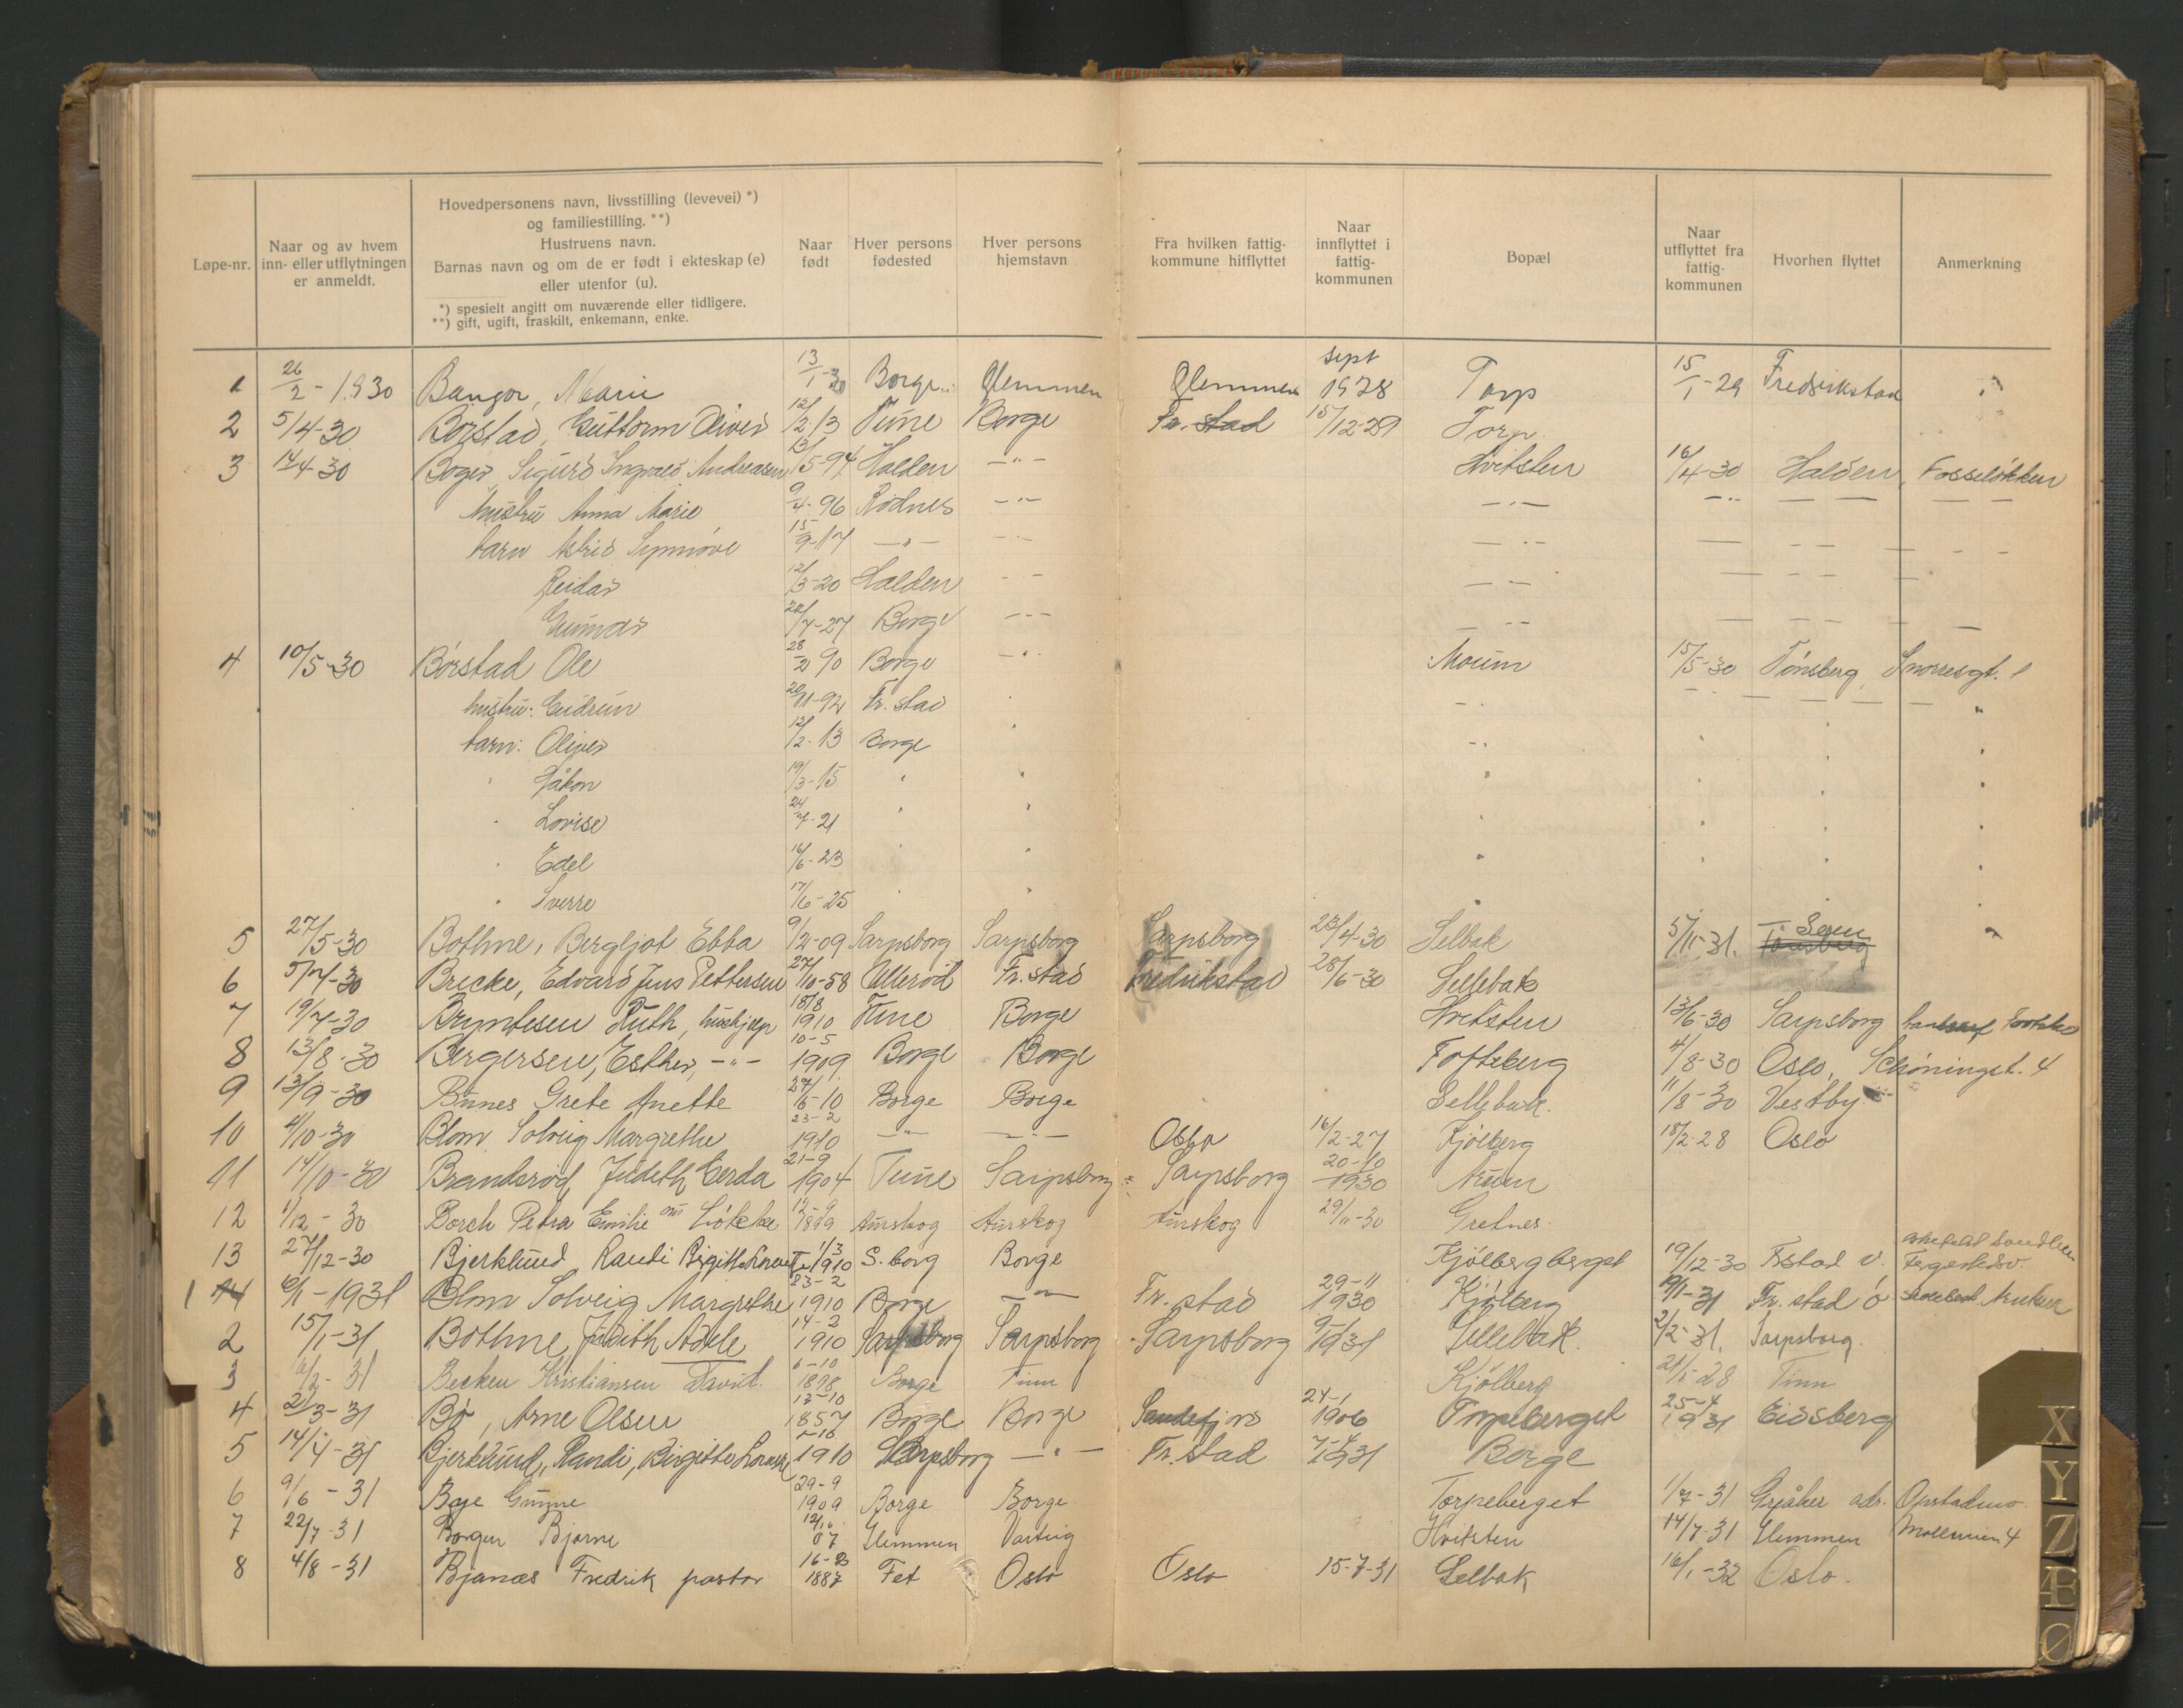 Løpe-nr. | Naar og av hvem inn- eller utflytningen er anmeldt. | Hovedpersonens navn, livsstilling (levevei) *) og familiestilling. **) Hustruens navn. Barnas navn og om de er født i ekteskap (e) eller utenfor (u). *) spesielt angitt om nuværende eller tidligere. **) gift, ugift, fraskilt, enkemann, enke. | Naar født | Hver persons fødested | Hver persons hjemstavn | Fra hvilken fattigkommune hitflyttet | Naar innflyttet i fattigkommunen | Bopæl | Naar utflyttet fra fattigkommunen | Hvorhen flyttet | Anmerkning
1 26/2-1930 Bangor, Marie 13/1-30 Borge Glemmen Glemmen sept 1928 Torp 15/1-29 Fredrikstad "
2 5/4-30 Børstad, Guttorm Oliver 12/2-13 Tune Borge Fr. stad 15/12-29 Torp.
3 14/4-30 Boger, Sigurd Ingvald Andreasen 13/5-94 Halden -"- Hvitsten 16/4-30 Halden, Fosseløkken
hustru Anna Marie 9/4-96 Rødnes -"- -"- -"- — — — —
barn Astrid Synnøve 15/9-17 -"- -"- -"- — — — — —
Reidar 12/3-20 Halden -"- — — — — — —
Gunnar 20/7-27 Borge -"- — — — — — —
4 10/5-30 Børstad Ole 28/2 90 Borge -"- Moum 15/5-30 Tønsberg, Snorresgt. 1
hustru: Gudrun 20/11-92 Fr. stad " -" — — — — "
barn: Oliver 12/2-13 Borge " -" " " "
" Håkon 19/3-15 " " " " " "
" Lovise 24/7-21 " " " " " "
" Edel 16/6-23 " " " " " "
" Sverre 17/6-25 " " " "
5 27/5-30 Bothne, Bergljot Ebba 9/2-09 Sarpsborg Sarpsborg Sarpsborg 23/4-30 Selbak 5/11-31. Tønsberg "
6 5/7-30 Brecke, Edvard Jens Pettersen 27/10-58 Ullerød Fr. stad Fredrikstad 28/6-30 Sellebak
7 19/7-30 Bryntesen Ruth, hushjelp 18/8 1910 Tune Borge Hvitsten 13/6-30 Sarpsborg
8 13/8-30 Bergersen, Esther, -"- 10-5 1909 Borge Borge Tofteberg 4/8-30 Oslo, Schøningst. 4
9 13/9-30 Bunes Grete Anette 27/6-10 Borge Borge Sellebak. 11/8-30 Vestby
10 4/10-30 Blom Solveig Margrethe 23-2 1910 -"- -"- Oslo 16/2-27 Kjølberg 18/2-28 Oslo
11 14/10-30 Brandsrød, Judith Gerda 21-9 1904 Tune Sarpsborg Sarpsborg 20-10 1930 Årum
12 1/12-30 Borch Petra Emilie Løkke 12-9 1899 Aurskog Aurskog Aurskog 29/11-30 Gretnes.
13 27/12-30 Bjerklund, Randi Birgitte 1/3 1910 S. borg Borge Kjølbergberget 19/12-30 Fstad Ø.
1 14 6/1-1931 Blom Solveig Margrethe 23-2 1910 Borge -"- Fr. stad 29-11 1930 Kjølberg 19/1-31 Fr. stad Ø
2 15/1-31 Bothne, Judith Adele 14-2 1910 Sarpsborg Sarpsborg Sarpsborg 9-1 1931 Sellebak. 2/2-31. Sarpsborg.
3 6/2-31 Becken Kristiansen David. 6-10 1898 Borge Tinn Kjølberg 21/1-28 Tinn
4 21/3-31 Bø, Arne Olsen 13-10 1857 Borge Borge Sandefjord 24-1 1906 Torpeberget 25-4 1931 Eidsberg
5 14/4-31 Bjerklund, Randi, Birgitte 1910 Sarpsborg -"- Fr. stad 7-4 1931 Borge
6 9/6-31 Bøe Gunne 29-9 1909 Borge Borge Torpeberget 1/7-31 Greåker adr. Opstadmo.
7 22/7-31 Borgen Bjarne 12/10 07 Glemmen Varteig Hvitsten 14/7-31 Glemmen
8 4/8-31 Bjanæs Fredrik pastor 1887 Fet Oslo Oslo 15-7-31 Selbak 16/1-32 Oslo.
X
Y
Z
Æ
Ø